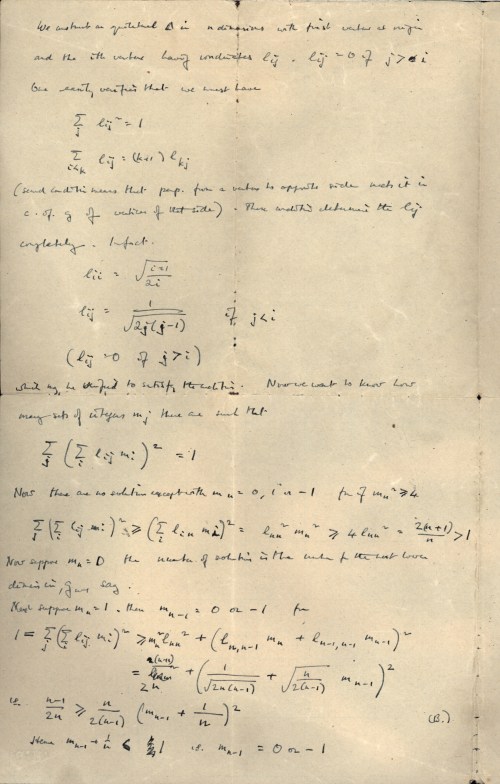 We construct an equilateral Δ in n dimensions with first vertex at origin
and the ith vertex having coordinates lij . lij = 0 if j > i
One easily verifies that we must have
∑j lij² = 1
∑i<k lij = (k+1) lkj
(second condition means that perp. from a vertex to opposite side meets it in
c. of g of vertices of that side) . These conditions determine the lij
completely . In fact .
lii = √(i+1 / 2i)
lij = 1 / √(2j(j-1)) if j<i
(lij = 0 if j > i)
which may be verified to satisfy the conditions. Now we want to know how
many sets of integers mj there are such that
∑j (∑i lij mi)² = 1
Now there are no solutions except with mn = 0, 1 or -1 for if mn² ≥ 4
∑j (∑i lij mi)² ≥ (∑i lin mi)² = lnn² mn² ≥ 4 lnn² = 2(n+1)/n > 1
Now suppose mn = 0 the number of solutions is the number for the next lower
dimension, say .
Next suppose mn = 1 . then mn-1 = 0 or -1 for
1 = ∑j (∑i lij mi)² ≥ mn² lnn² + (ln,n-1 mn + ln-1,n-1 mn-1)²
= (n+1)/2n + (1/√(2n(n-1)) + √(n/2(n-1)) mn-1)²
i.e. n-1/2n ≥ n/2(n-1) (mn-1 + 1/n)² (B.)
Hence mn-1 + 1/n < 1 i.e. mn-1 = 0 or -1